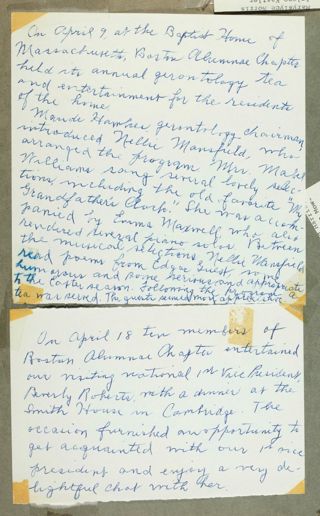 On April 9 at the Baptist Home of
Massachusetts, Boston Alumnae Chapter
held its annual gerontology tea
and entertainment for the residents
of the home.
Maude Hamber, gerontology chairman,
introduced Nellie Mansfield, who
arranged the program. Mrs. Mabel
Williams sang several lovely selec-
tions, including the old favorite "My
Grandfather's Clock." She was accom-
panied by Emma Maxwell who also
rendered several piano solos. Between
the musical selections, Nellie Mansfield
read poems from Edgar Guest, some
humorous and some serious and appropriate
to the Easter season. Following the program a
tea was served. The guests seemed most appreciative.
On April 18 ten members of
Boston Alumnae Chapter entertained
our visiting national 1st Vice President,
Beverly Roberts, with a dinner at the
Smith House in Cambridge. The
occasion furnished an opportunity to
get acquainted with our 1st vice
president and enjoy a very de-
lightful chat with her.